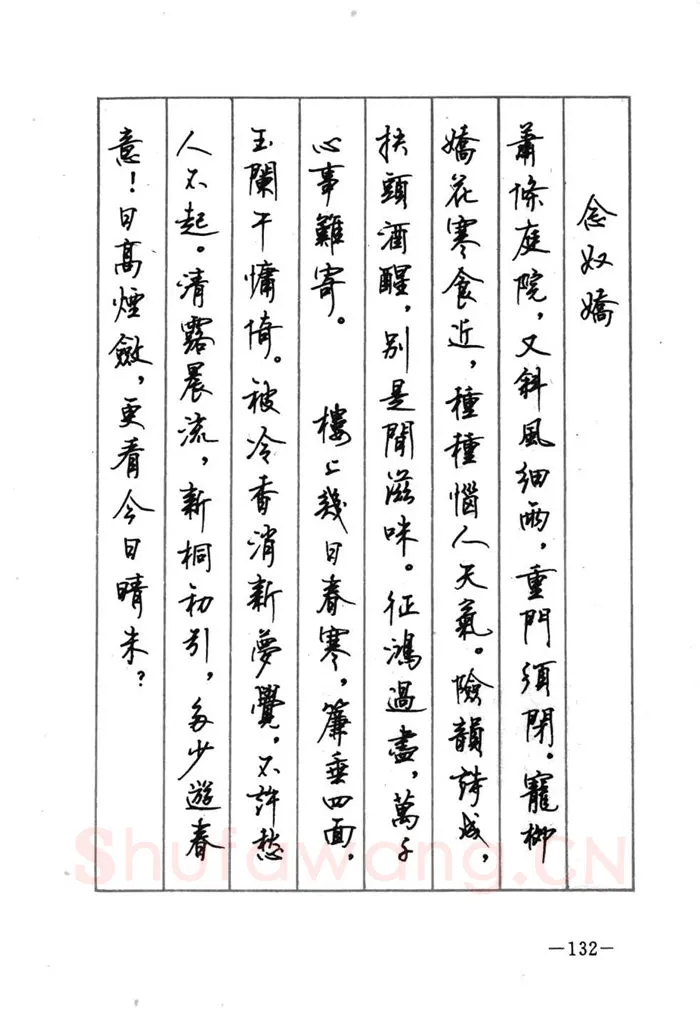 念奴嬌
蕭條庭院，又斜風細雨，重門須閉。寵柳
嬌花寒食近，種種惱人天氣。險韻詩成，
扶頭酒醒，別是閒滋味。征鴻過盡，萬千
心事難寄。　樓上幾日春寒，簾垂四面，
玉闌干慵倚。被冷香消新夢覺，不許愁
人不起。清露晨流，新桐初引，多少遊春
意！日高煙斂，更看今日晴未？
Shufawang.CN
—132—